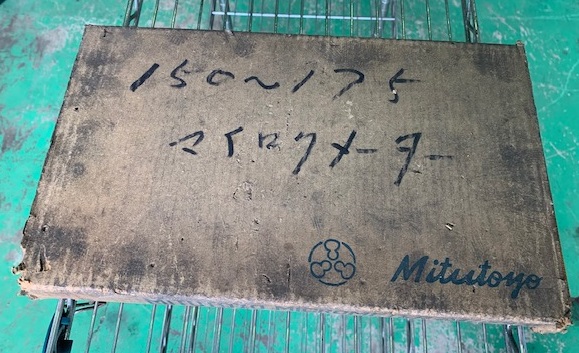 150~175
マイロクメーター
Mitutoyo